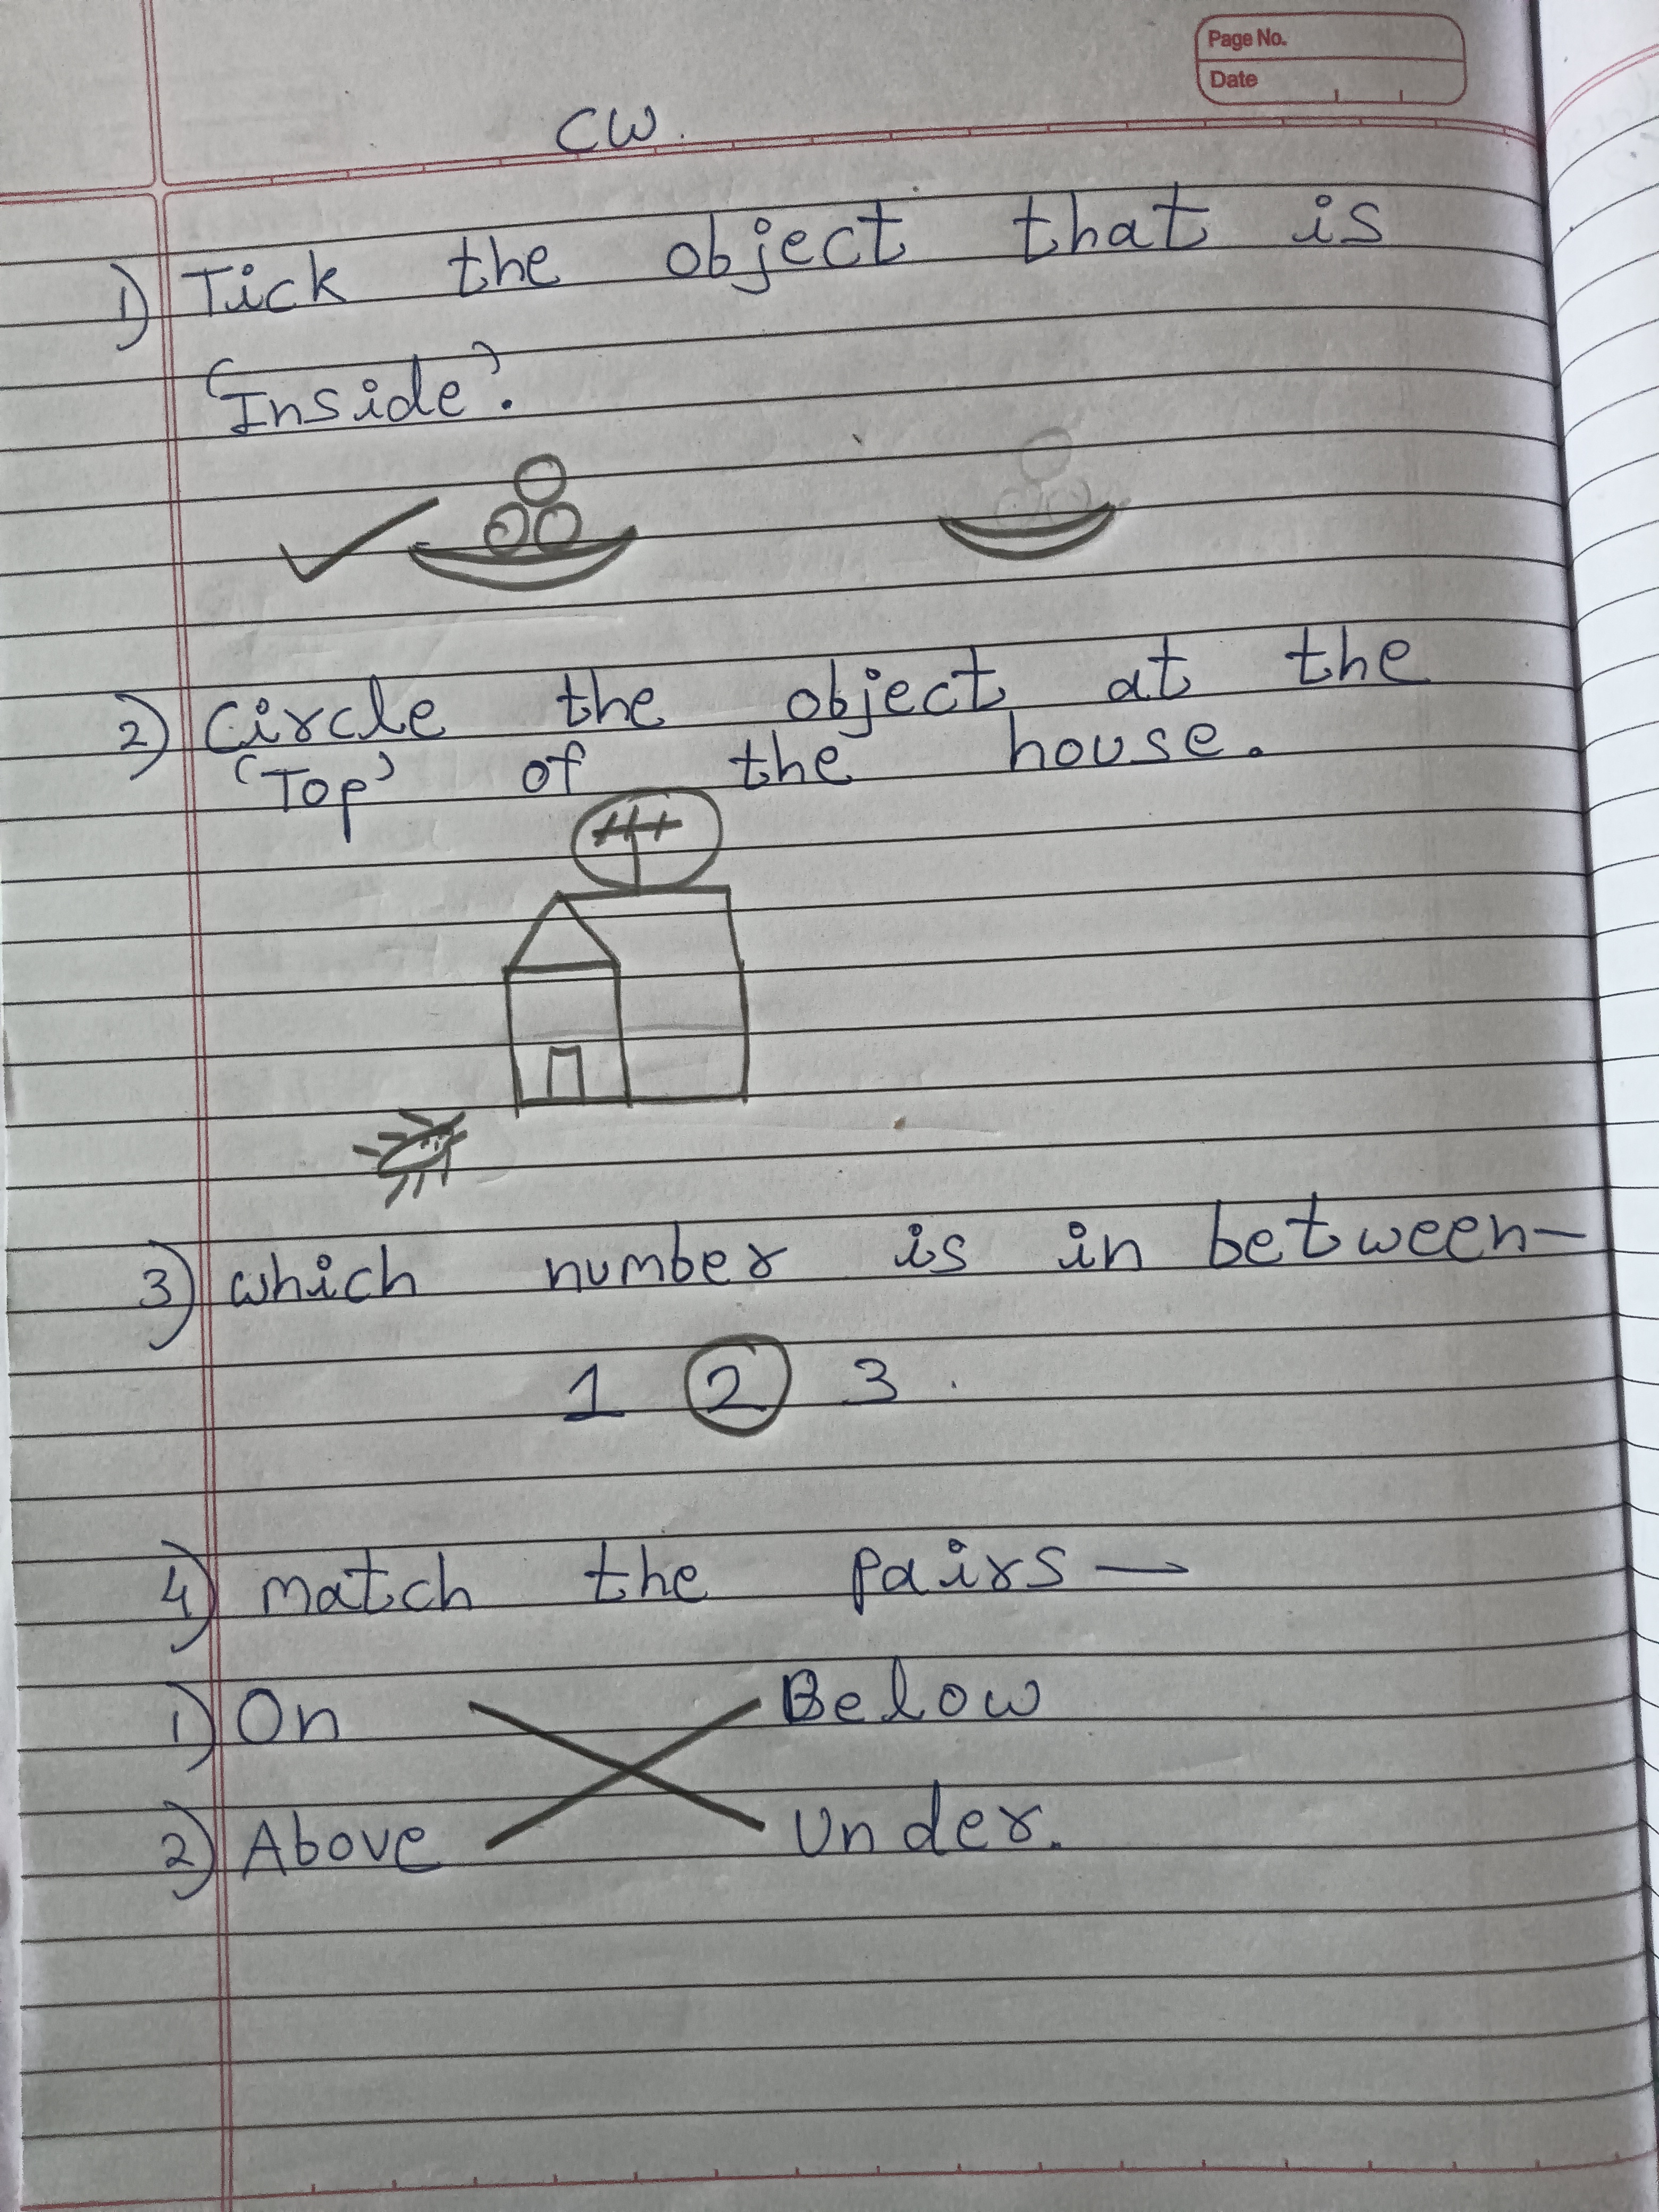 Page No.
Date
CW.
1) Tick the object that is
'Inside'.
2) Circle the object at the
'Top' of the house.
3) which number is in between-
1 2 3.
4) Match the pairs —
1) On Below
2) Above Under.